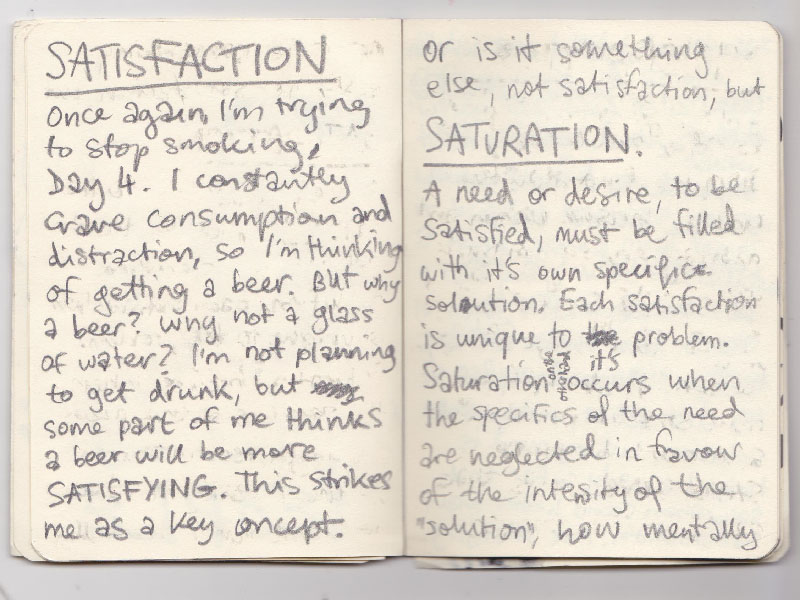 SATISFACTION
Once again, I'm trying
to stop smoking,
Day 4. I constantly
crave consumption and
distraction, so I'm thinking
of getting a beer. But why
a beer? Why not a glass
of water? I'm not planning
to get drunk, but
some part of me thinks
a beer will be more
SATISFYING. This strikes
me as a key concept.
or is it something
else, not satisfaction, but
SATURATION.
A need or desire, to be
satisfied, must be filled
with it's own specific
solution. Each satisfaction
is unique to problem.
it's
Saturation on the other hand occurs when
the specifics of the need
are neglected in favour
of the intensity of the
"solution", how mentally